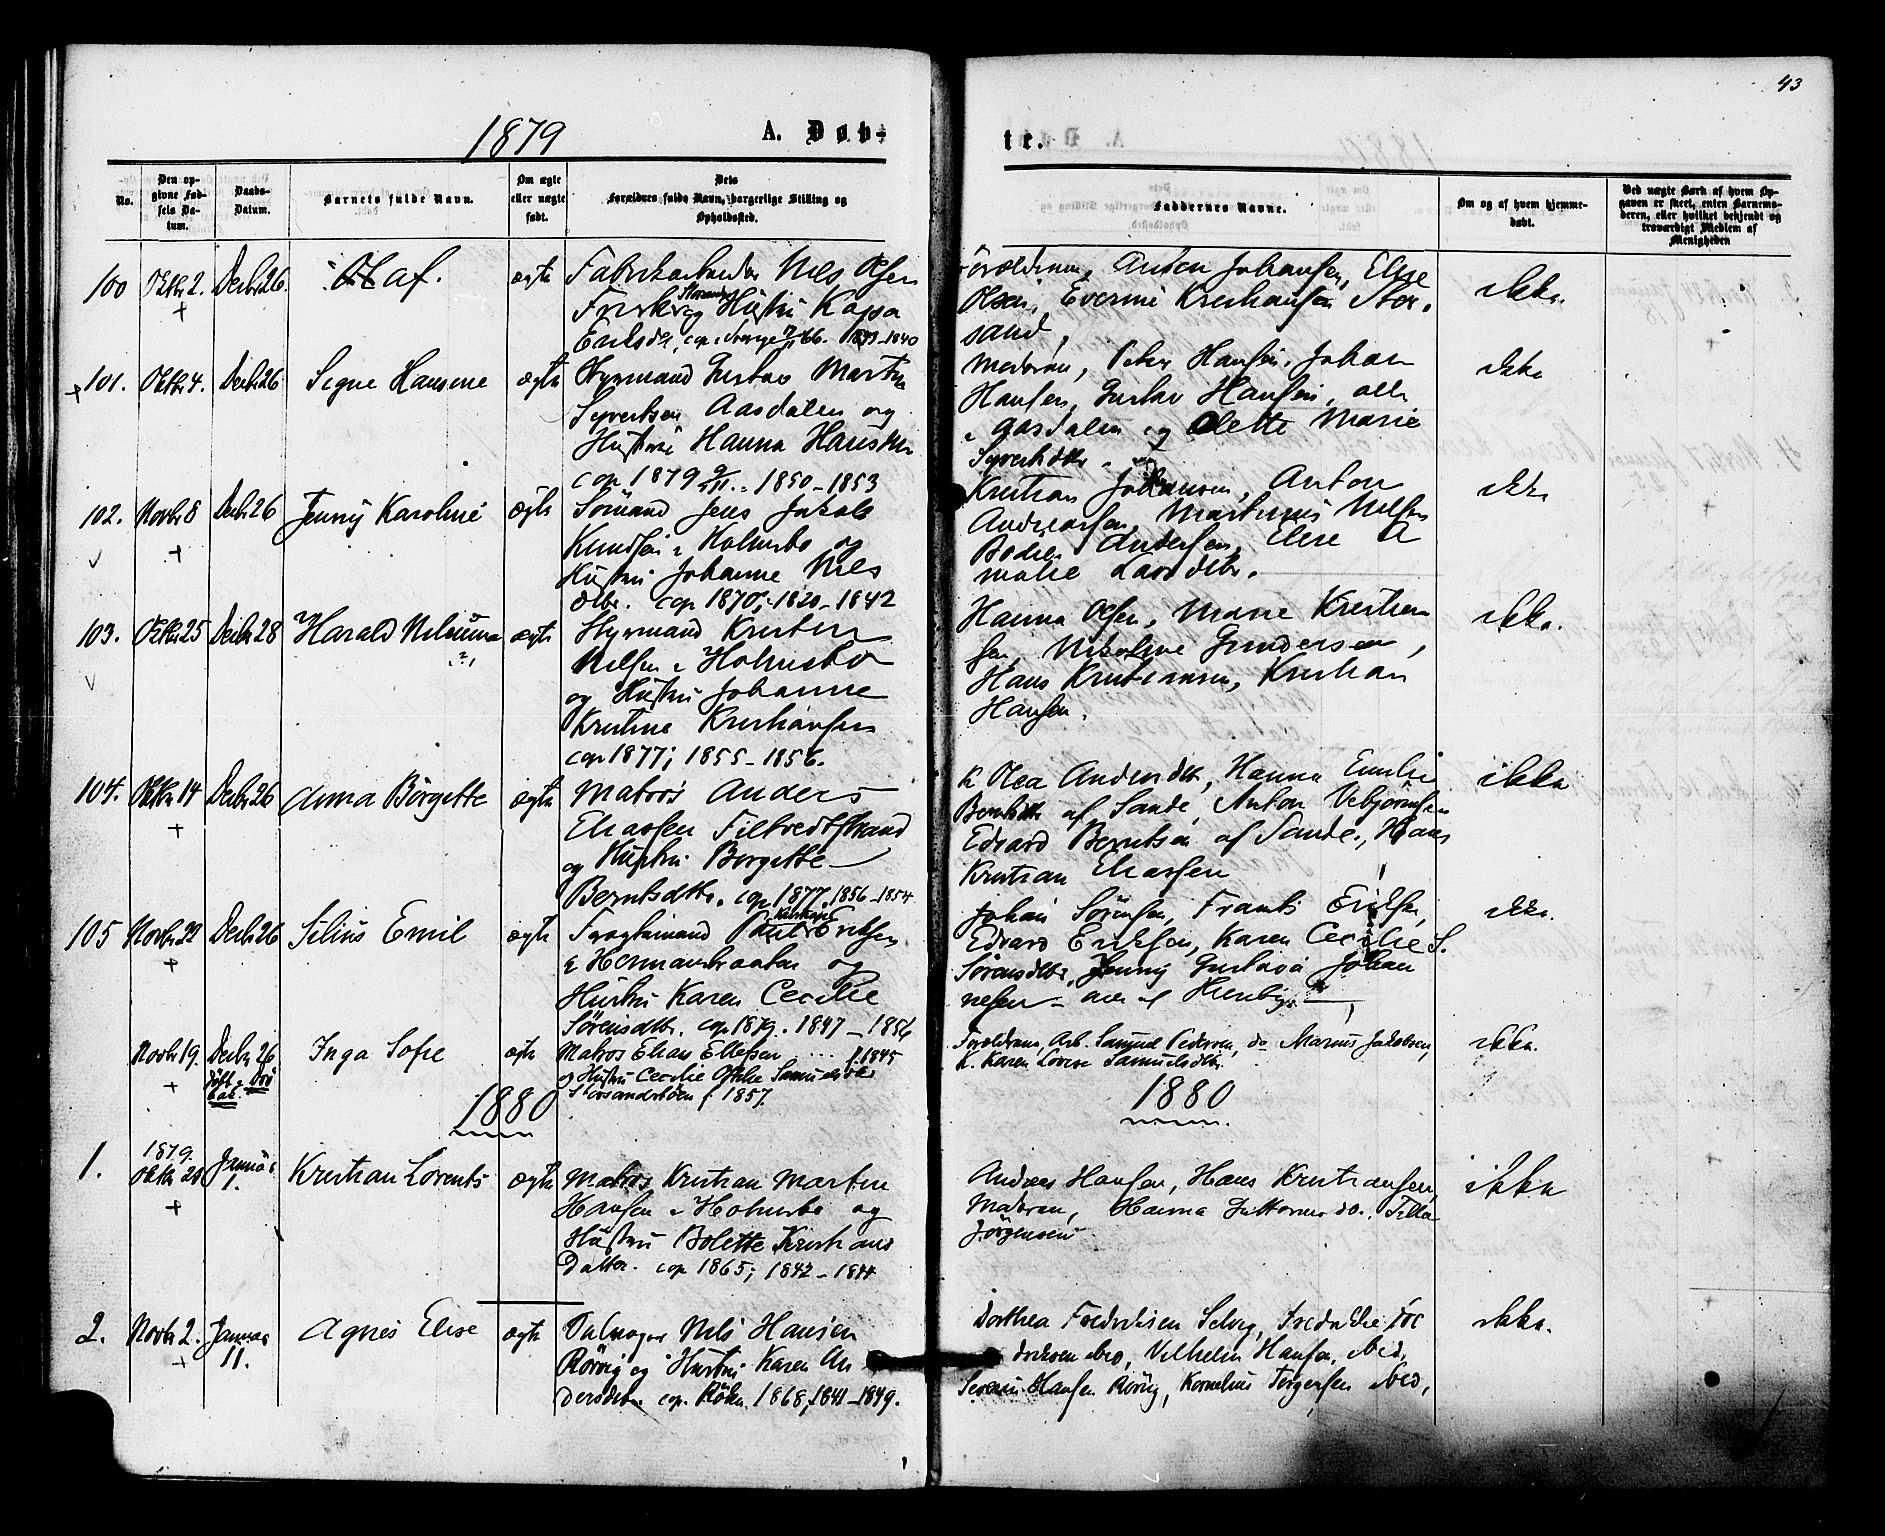 43
1879
A. Døb-
tr.
No.
Den op-
givne Fød-
sels Da-
tum.
Daabs-
Datum.
Barnets fulde Navn.
Om ægte
eller uægte
født.
Dets
Forældres fulde Navn, borgerlige Stilling og
Opholdssted.
Faddernes Navne.
Om og af hvem hjemme-
døbt.
Ved uægte Barn af hvem Op-
gaven er skeet, enten Barnemo-
deren, eller hvilket bekjendt og
troværdigt Medlem af
Menigheden
100 Oktbr 2. Decbr 26. Olaf. ægte
Fabrikarbeider Nils Olsen
og Hustru Kajsa
1840
Forældrene, Anton Johansen, Elise
Olsen, Evermine Kristiansen Stor-
sand,
ikke.
101. Oktbr 4. Decbr 26 Signe Hansine ægte
Styrmand Gustav Martin
Syvertsen Aasdalen og
Hustru Hanna Hansdtr
cop 1879 9/11. 1850 - 1853
Moderen, Peter Hansen, Johan
Hansen, Gustav Hansen, alle
i Aasdalen og Olette Marie
Syvertsdtr.
ikke
102. Novbr 8 Decbr 26 Jenny Karoline ægte
Sömand Jens Jakob
Knudsen i Holmsbo og
Hustru Johanne Nils
dtr. cop 1870; 1820 - 1842
Kristian Johansen, Anton
Andreassen, Martinius Nilsen
Andersen, Elise A
malie Larsdtr.
ikke
103. Oktbr 25 Decbr 28 Harald Nilsuma ægte
Styrmand Kristen
Nilsen i Holmsbo
og Hustru Johanne
Kristine Kristiansen
cop 1877; 1855 - 1856.
Hanna Olsen, Marie Kristian
sen, Nikoline Gundersen,
Hans Kristiansen, Kristian
Hansen.
ikke.
104. Oktbr 14 Decbr 26 Anna Börgette ægte
Matros Anders
Eliassen Filtvedtstrand
og Hustru Borgette
Berntsdtr. cop 1877. 1856 - 1854
K. Olea Andersdtr, Hanna Emilie
Berntsdtr af Sande, Anton Vebjörnsen
Edvard Berntsen af Sande, Hans
Kristian Eliassen
ikke
105 Novbr 22 Decbr 26 Silius Emil ægte
Fragtemand Eriksen
i og
Hustru Karen Cecilie
Sörensdtr. cop 1879. 1847 - 1856
Johan Sörensen, Frants Eriksen,
Edvard Eriksen, Karen Cecilie S.
Sörensdtr, Jenny Gustava Johan
nesen
ikke.
Novbr 19. Decbr 26 Inga Sofie ægte
Matros Elias Ellefsen f. 1845
og Hustru Cecilie Samuelsdtr
f. 1857.
Forældrene, Arb. Samuel Pedersen, do Marius Jakobsen,
K. Karen Lovise Samuelsdtr
ikke.
1880
1880
1. 1879. Oktbr 20 Januar 1. Kristian Lorents ægte
Matros Kristian Martin
Hansen i Holmsbo og
Hustru Bolette Kristians
Datter. cop 1865; 1842 - 1844
Anders Hansen, Hans Kristiansen,
Moderen, Hanna Guttormsdtr., Tilla
Jörgensen
ikke
2. Novbr 2. Januar 11. Agnes Elise ægte
Nils Hansen
Rörvig og Hustru Karen An
dersdtr. cop. Röken 1868, 1841 - 1849.
Dorthea Fredriksen Selvig, Fre
driksen ibid, Vilhelm Hansen, ibid,
Severin Hansen Rörvig, Kornelius Torgersen ibid,
ikke.